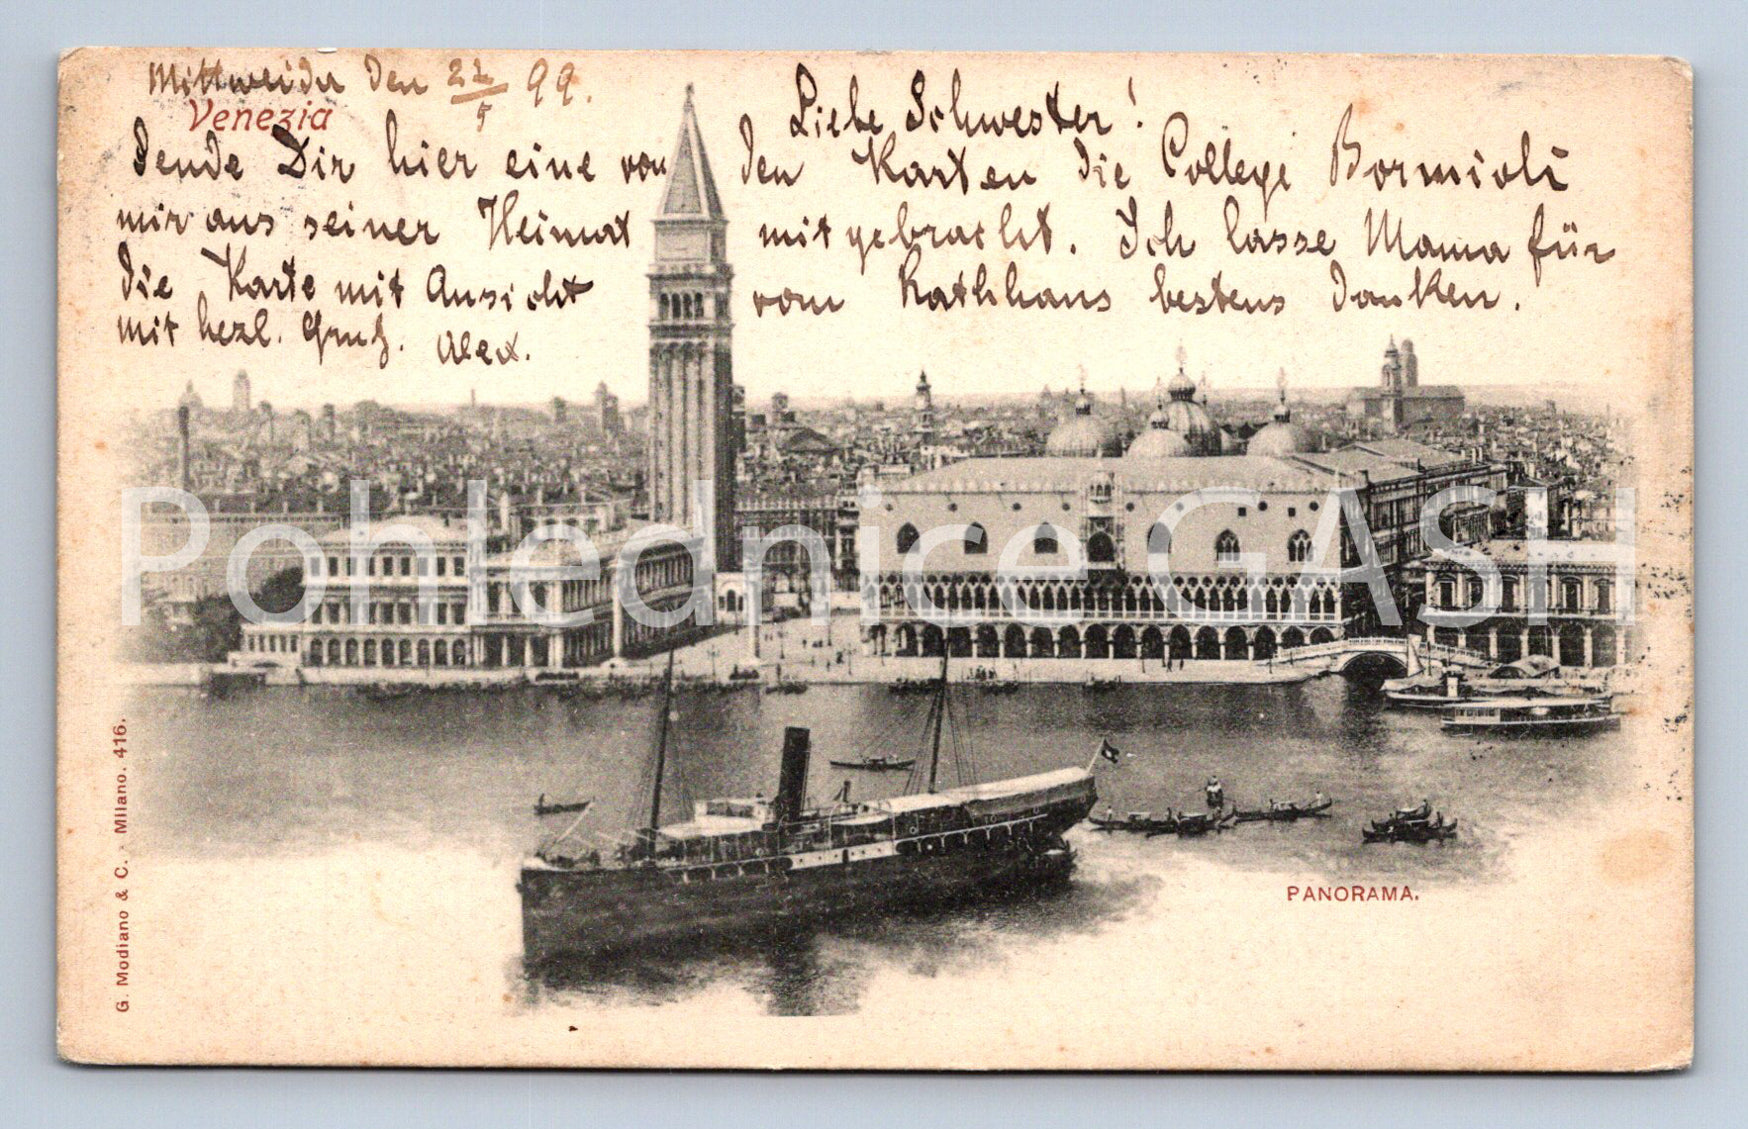 Mittweida den 22/5 99.
Venezia
Liebe Schwester!
Sende Dir hier eine von den Karten die College Bormioli
mir aus seiner Heimat mitgebracht. Ich lasse Mama für
die Karte mit Ansicht vom Rathhaus bestens danken.
mit hezl. Gruß. Alex.
Pohlednice GASH
PANORAMA.
G. Modiano & C. - Milano. 416.